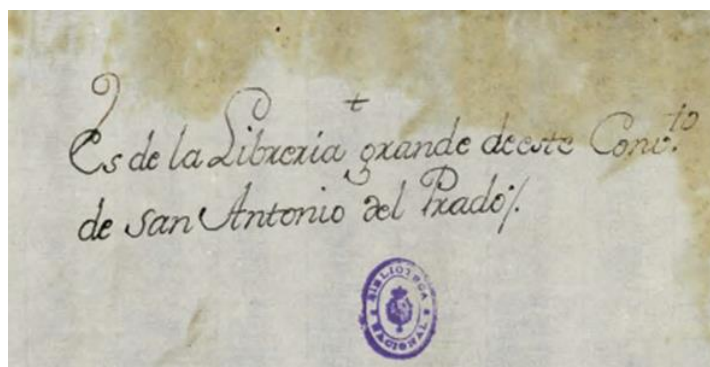 +
Es de la Libreria grande de este Conv.to
de san Antonio del Prado/.
BIBLIOTECA NACIONAL